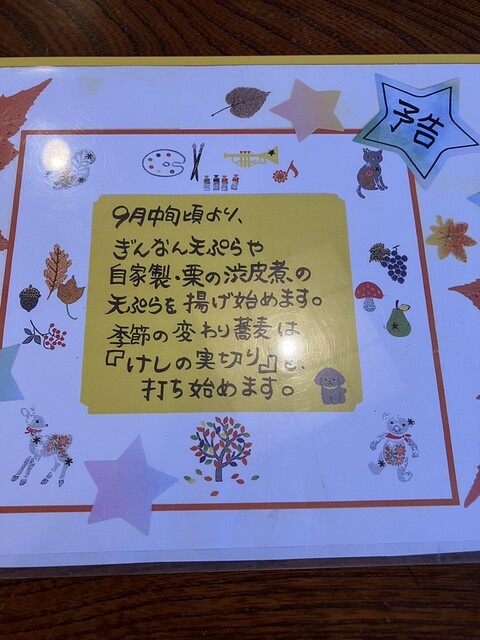 予告
9月中旬頃より、
ぎんなん天ぷらや
自家製・栗の渋皮煮の
天ぷらを揚げ始めます。
季節の変わり蕎麦は
『けしの実切り』を、
打ち始めます。